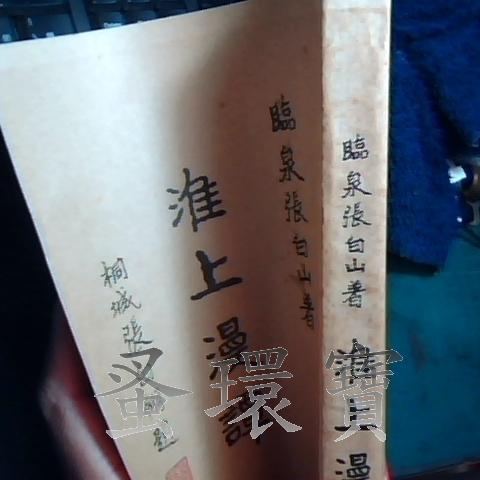 臨泉張白山著
淮上漫
臨泉張白山著
淮上漫
桐城張
蚤環寶